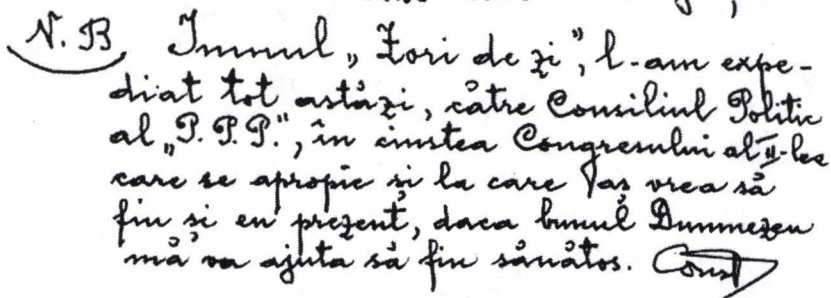 N.B. Imnul „Zori de zi”, l-am expe-
diat tot astăzi, către Consiliul Politic
al „P.P.P.”, în cinstea Congresului al II-lea
care se apropie și la care aș vrea să
fiu și eu prezent, daca bunul Dumnezeu
mă va ajuta să fiu sănătos. Const